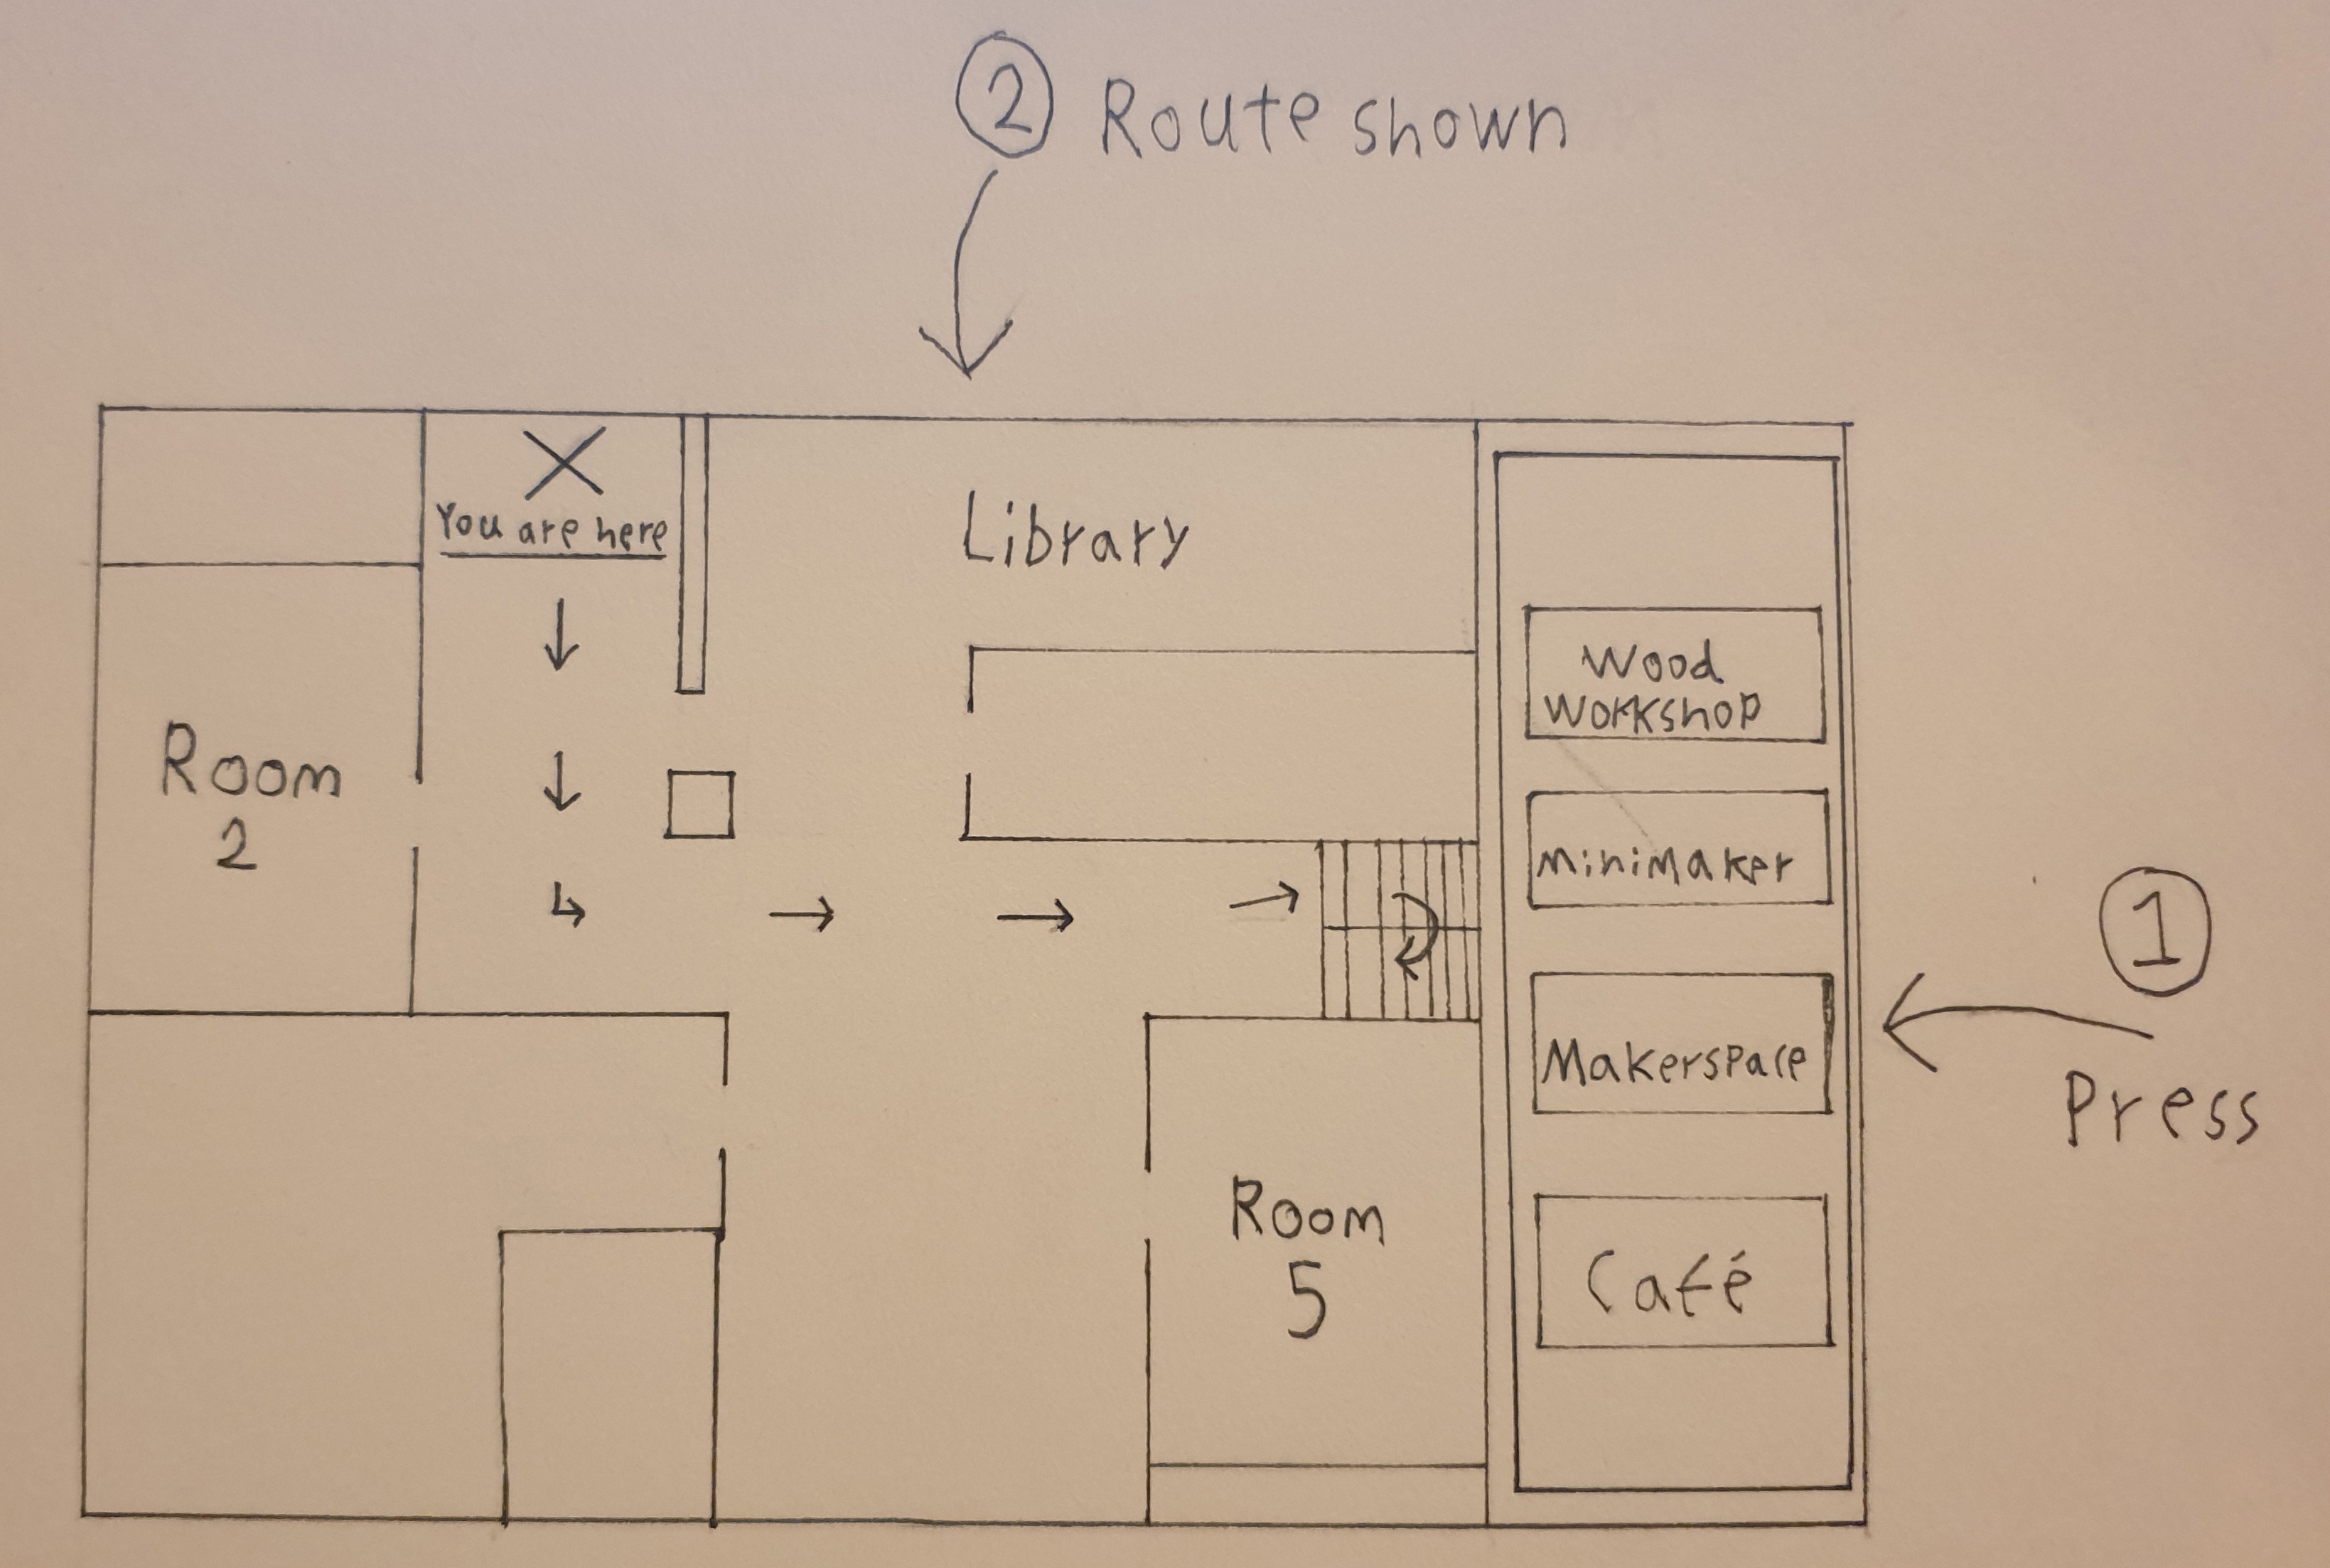 2 Route shown
You are here
Library
Room
2
Wood
Workshop
Minimaker
Makerspace
Café
1
Press
Room
5